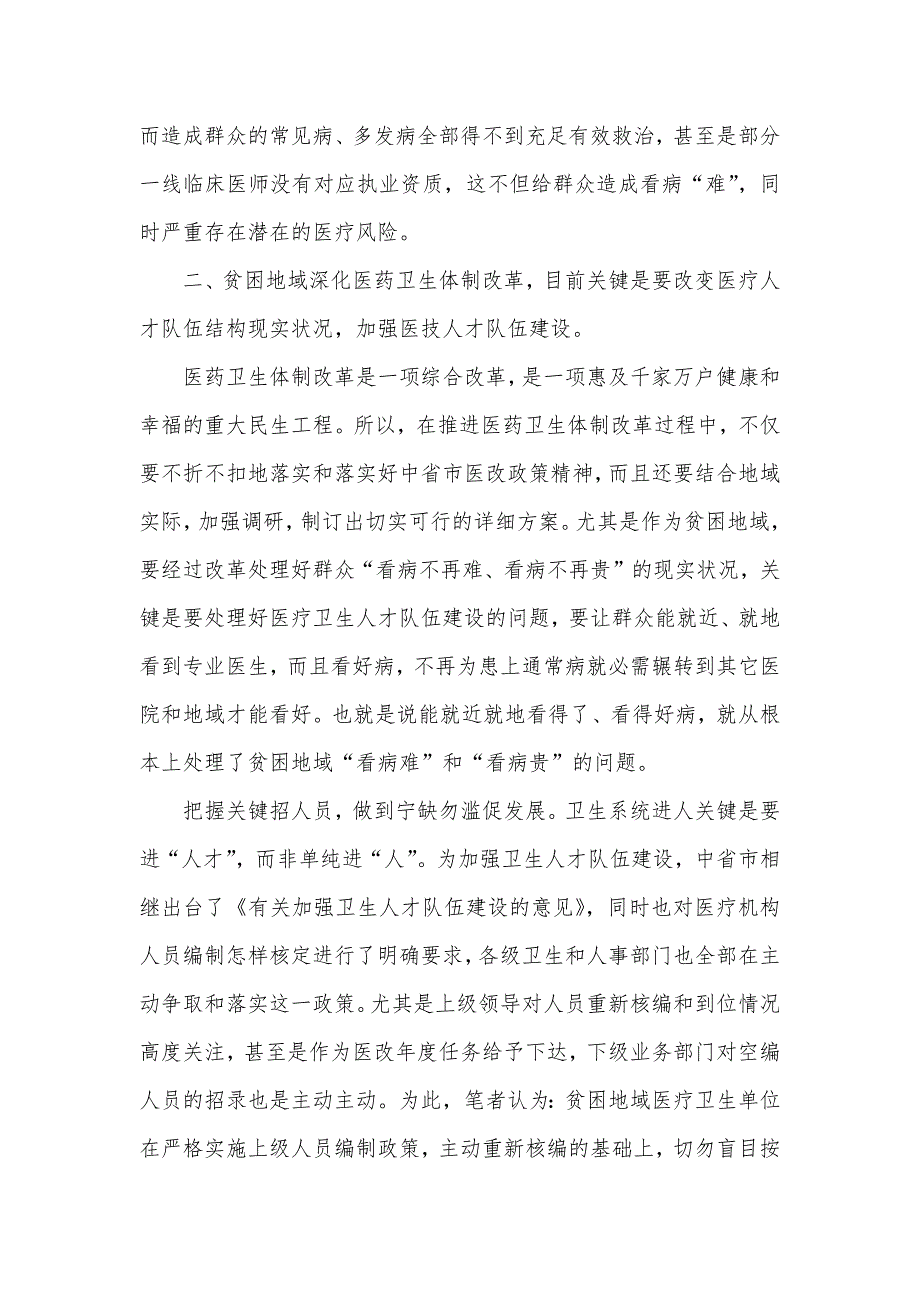 而造成群众的常见病、多发病全部得不到充足有效救治，甚至是部分
一线临床医师没有对应执业资质，这不但给群众造成看病“难”，同
时严重存在潜在的医疗风险。
二、贫困地域深化医药卫生体制改革，目前关键是要改变医疗人
才队伍结构现实状况，加强医技人才队伍建设。
医药卫生体制改革是一项综合改革，是一项惠及千家万户健康和
幸福的重大民生工程。所以，在推进医药卫生体制改革过程中，不仅
要不折不扣地落实和落实好中省市医改政策精神，而且还要结合地域
实际，加强调研，制订出切实可行的详细方案。尤其是作为贫困地域，
要经过改革处理好群众“看病不再难、看病不再贵”的现实状况，关
键是要处理好医疗卫生人才队伍建设的问题，要让群众能就近、就地
看到专业医生，而且看好病，不再为患上通常病就必需辗转到其它医
院和地域才能看好。也就是说能就近就地看得了、看得好病，就从根
本上处理了贫困地域“看病难”和“看病贵”的问题。
把握关键招人员，做到宁缺勿滥促发展。卫生系统进人关键是要
进“人才”，而非单纯进“人”。为加强卫生人才队伍建设，中省市相
继出台了《有关加强卫生人才队伍建设的意见》，同时也对医疗机构
人员编制怎样核定进行了明确要求，各级卫生和人事部门也全部在主
动争取和落实这一政策。尤其是上级领导对人员重新核编和到位情况
高度关注，甚至是作为医改年度任务给予下达，下级业务部门对空编
人员的招录也是主动主动。为此，笔者认为：贫困地域医疗卫生单位
在严格实施上级人员编制政策，主动重新核编的基础上，切勿盲目按